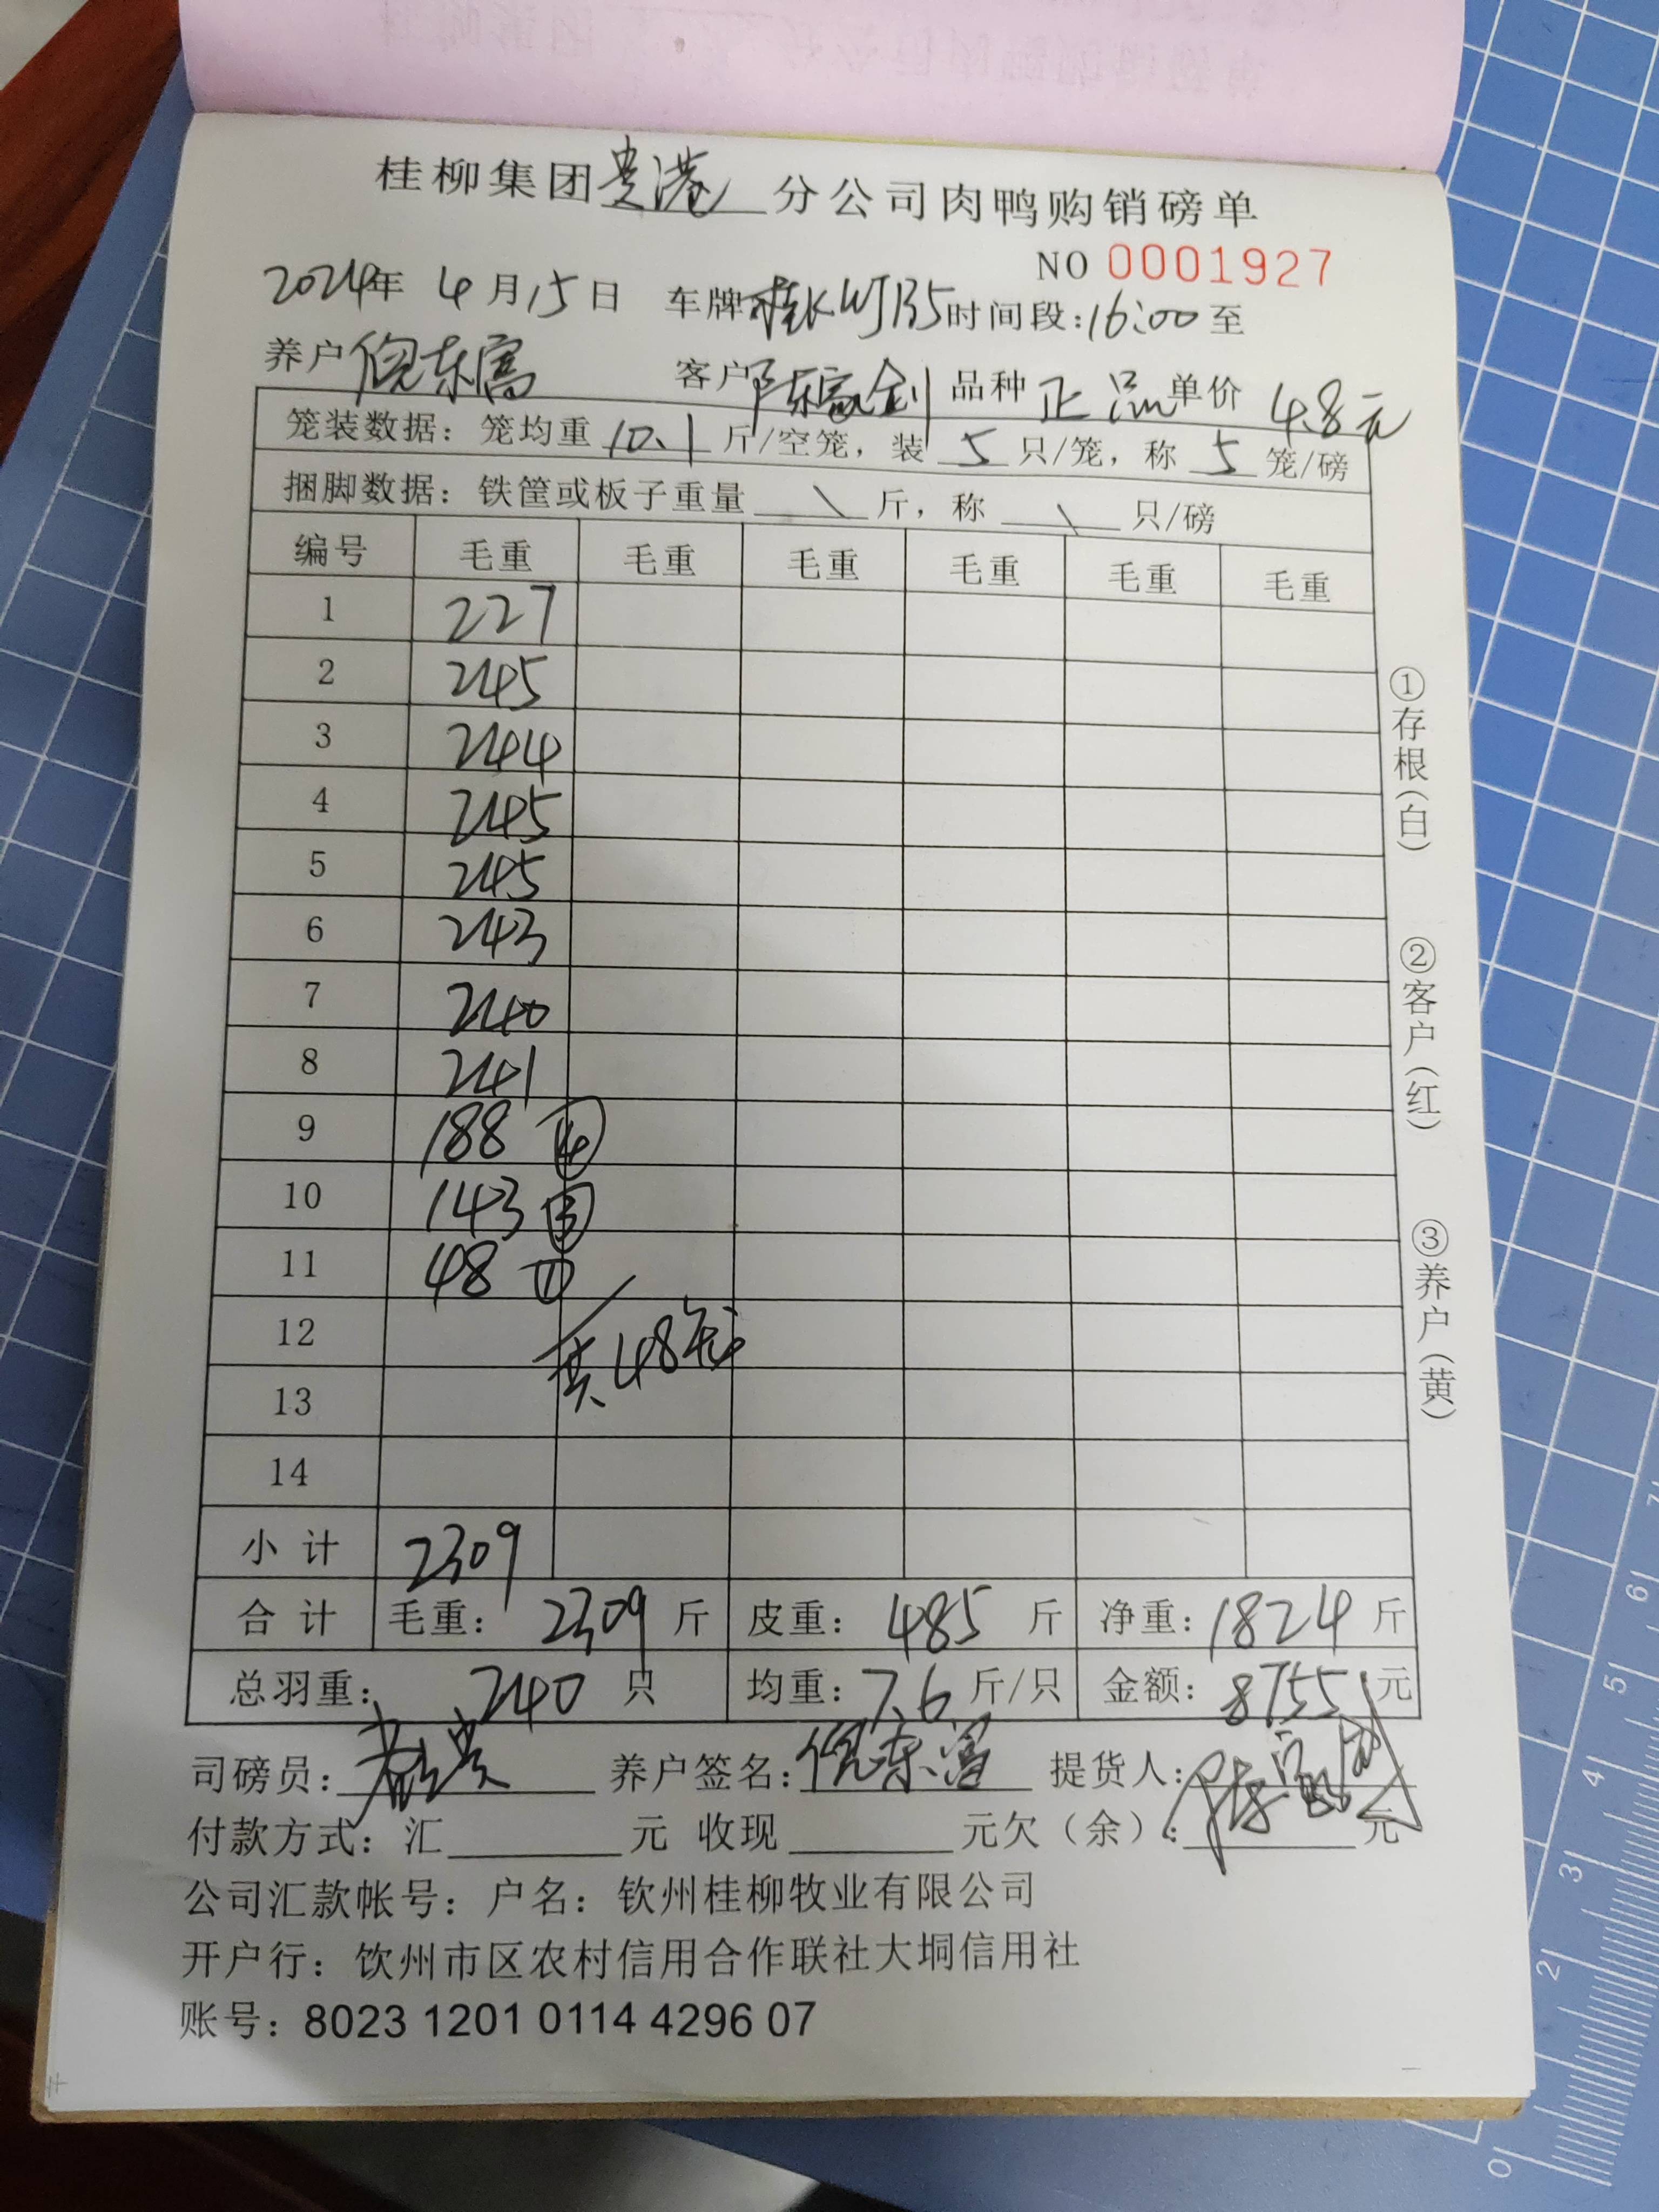 桂柳集团贵港分公司肉鸭购销磅单
NO 0001927
2024年 4月15日 车牌桂KWJ135时间段:16:00至
养户倪东富 客户陈富剑 品种 正品 单价 4.8元
笼装数据：笼均重 10.1 斤/空笼，装 5 只/笼，称 5 笼/磅
捆脚数据：铁筐或板子重量 \ 斤，称 \ 只/磅
编号 毛重 毛重 毛重 毛重 毛重 毛重
1 227
2 245
3 244
4 245
5 245
6 243
7 240
8 241
9 188 ④
10 143 ③
11 48 ①
12 共48笼
13
14
小计 2309
合计 毛重： 2309 斤 皮重： 485 斤 净重：1824 斤
总羽重： 240 只 均重：7.6 斤/只 金额：8755元
司磅员： 养户签名：倪东富 提货人：
付款方式：汇 元 收现 元欠（余）： 元
公司汇款帐号：户名：钦州桂柳牧业有限公司
开户行：饮州市区农村信用合作联社大垌信用社
账号：8023 1201 0114 4296 07
①存根（白）
②客户（红）
③养户（黄）
7
6
5
4
3
2
0